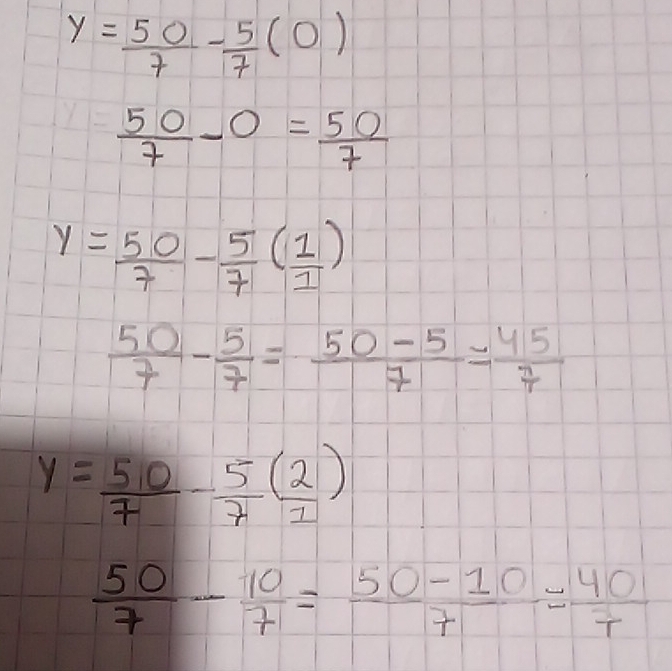 y = 50/7 - 5/7 (0)
50/7 - 0 = 50/7
y = 50/7 - 5/7 (1/1)
50/7 - 5/7 = 50-5/7 = 45/7
y = 50/7 - 5/7 (2/1)
50/7 - 10/7 = 50-10/7 = 40/7